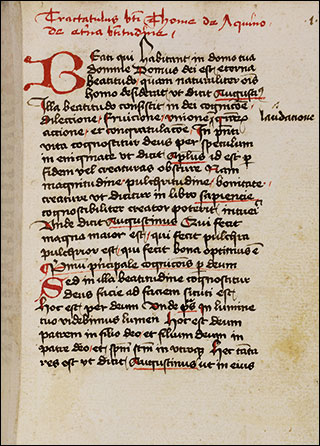 Tractatulus bti Thome de Aquino
de etna btitudine
Beati qui habitant in domo tua
domine Domus dei est eterna
beatitudo quam naturaliter ois
homo desiderat ut dicit Augusti9
Illa beatitudo consistit in dei cognicoe
dilectione fruicione unione
laudacione
actione et congratulacoe In pnti
vita cognoscitur deus per speculum
in enigmate ut dicit aplus id est p
fidem vel creaturas obscure Nam
magnitudine pulchritudine bonitate
creature ut dicitur in libro sapiencie
cognoscibiliter creator poterit
Unde dicit Augustinus Qui fecit
magna maior est qui fecit pulchra
pulchrior est qui fecit bona optimus e
deum
Sed in illa beatitudine cognoscitur
deus facie ad faciem sicuti est
hoc est per deum Unde ps In lumine
tuo videbimus lumen hoc est deum
patrem in filio deo et filium deum in
patre deo et spm stm in utroq Hec
res est ut dicit Augustinus ut in eius